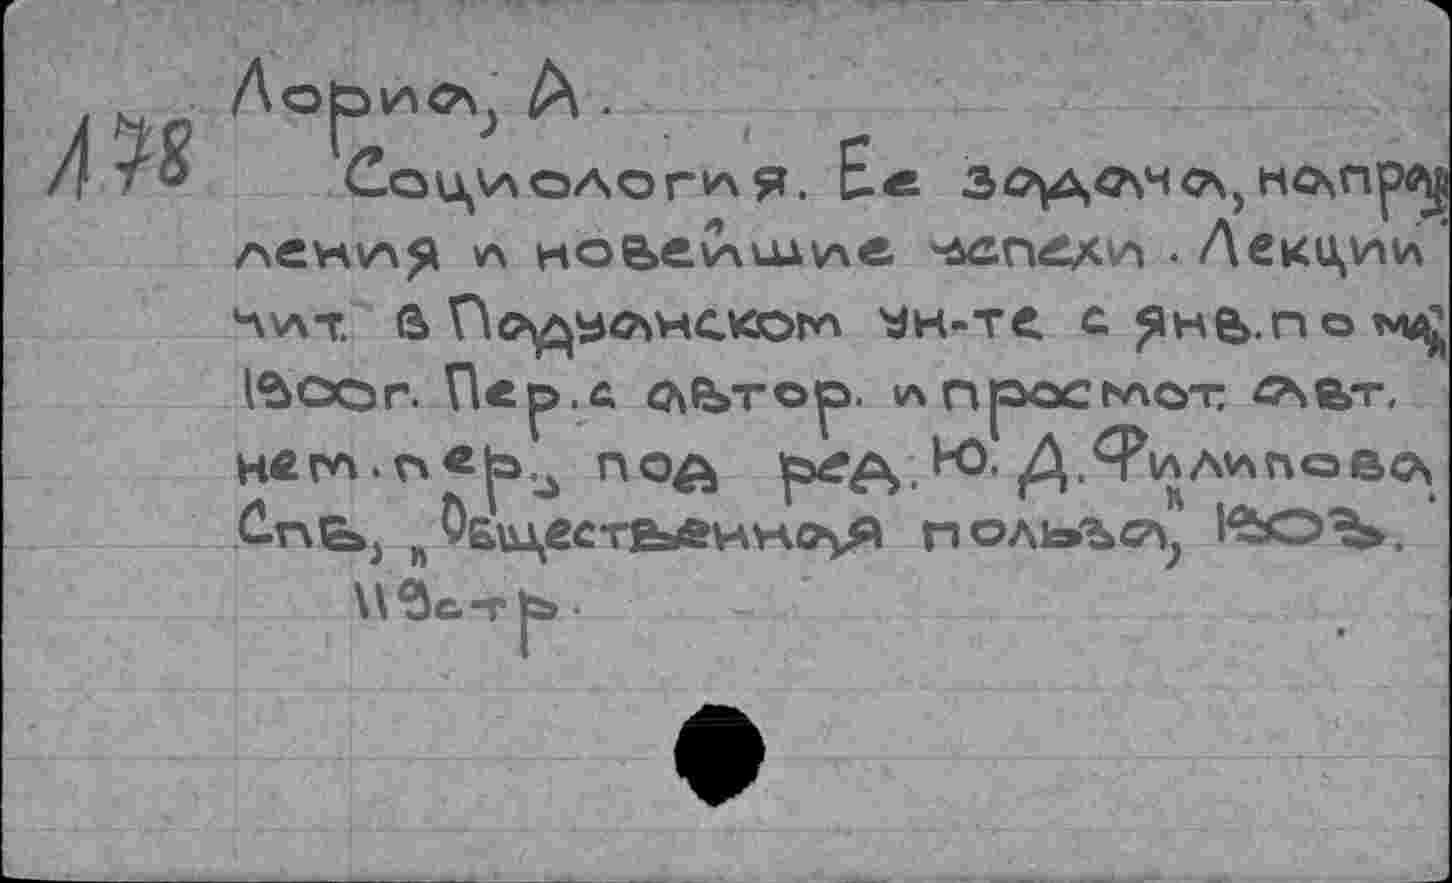 Лориа, А.
Л78
Социология. Ее задача, направ
ления и новейшие успехи. Лекции
чит. в Падуанском ун-те с янв. по май
1900г. Пер. с автор. и просмот. авт.
нем. пер., под ред. Ю. Д. Филипова
Спб., „Общественная польза", 1903.
119 стр.